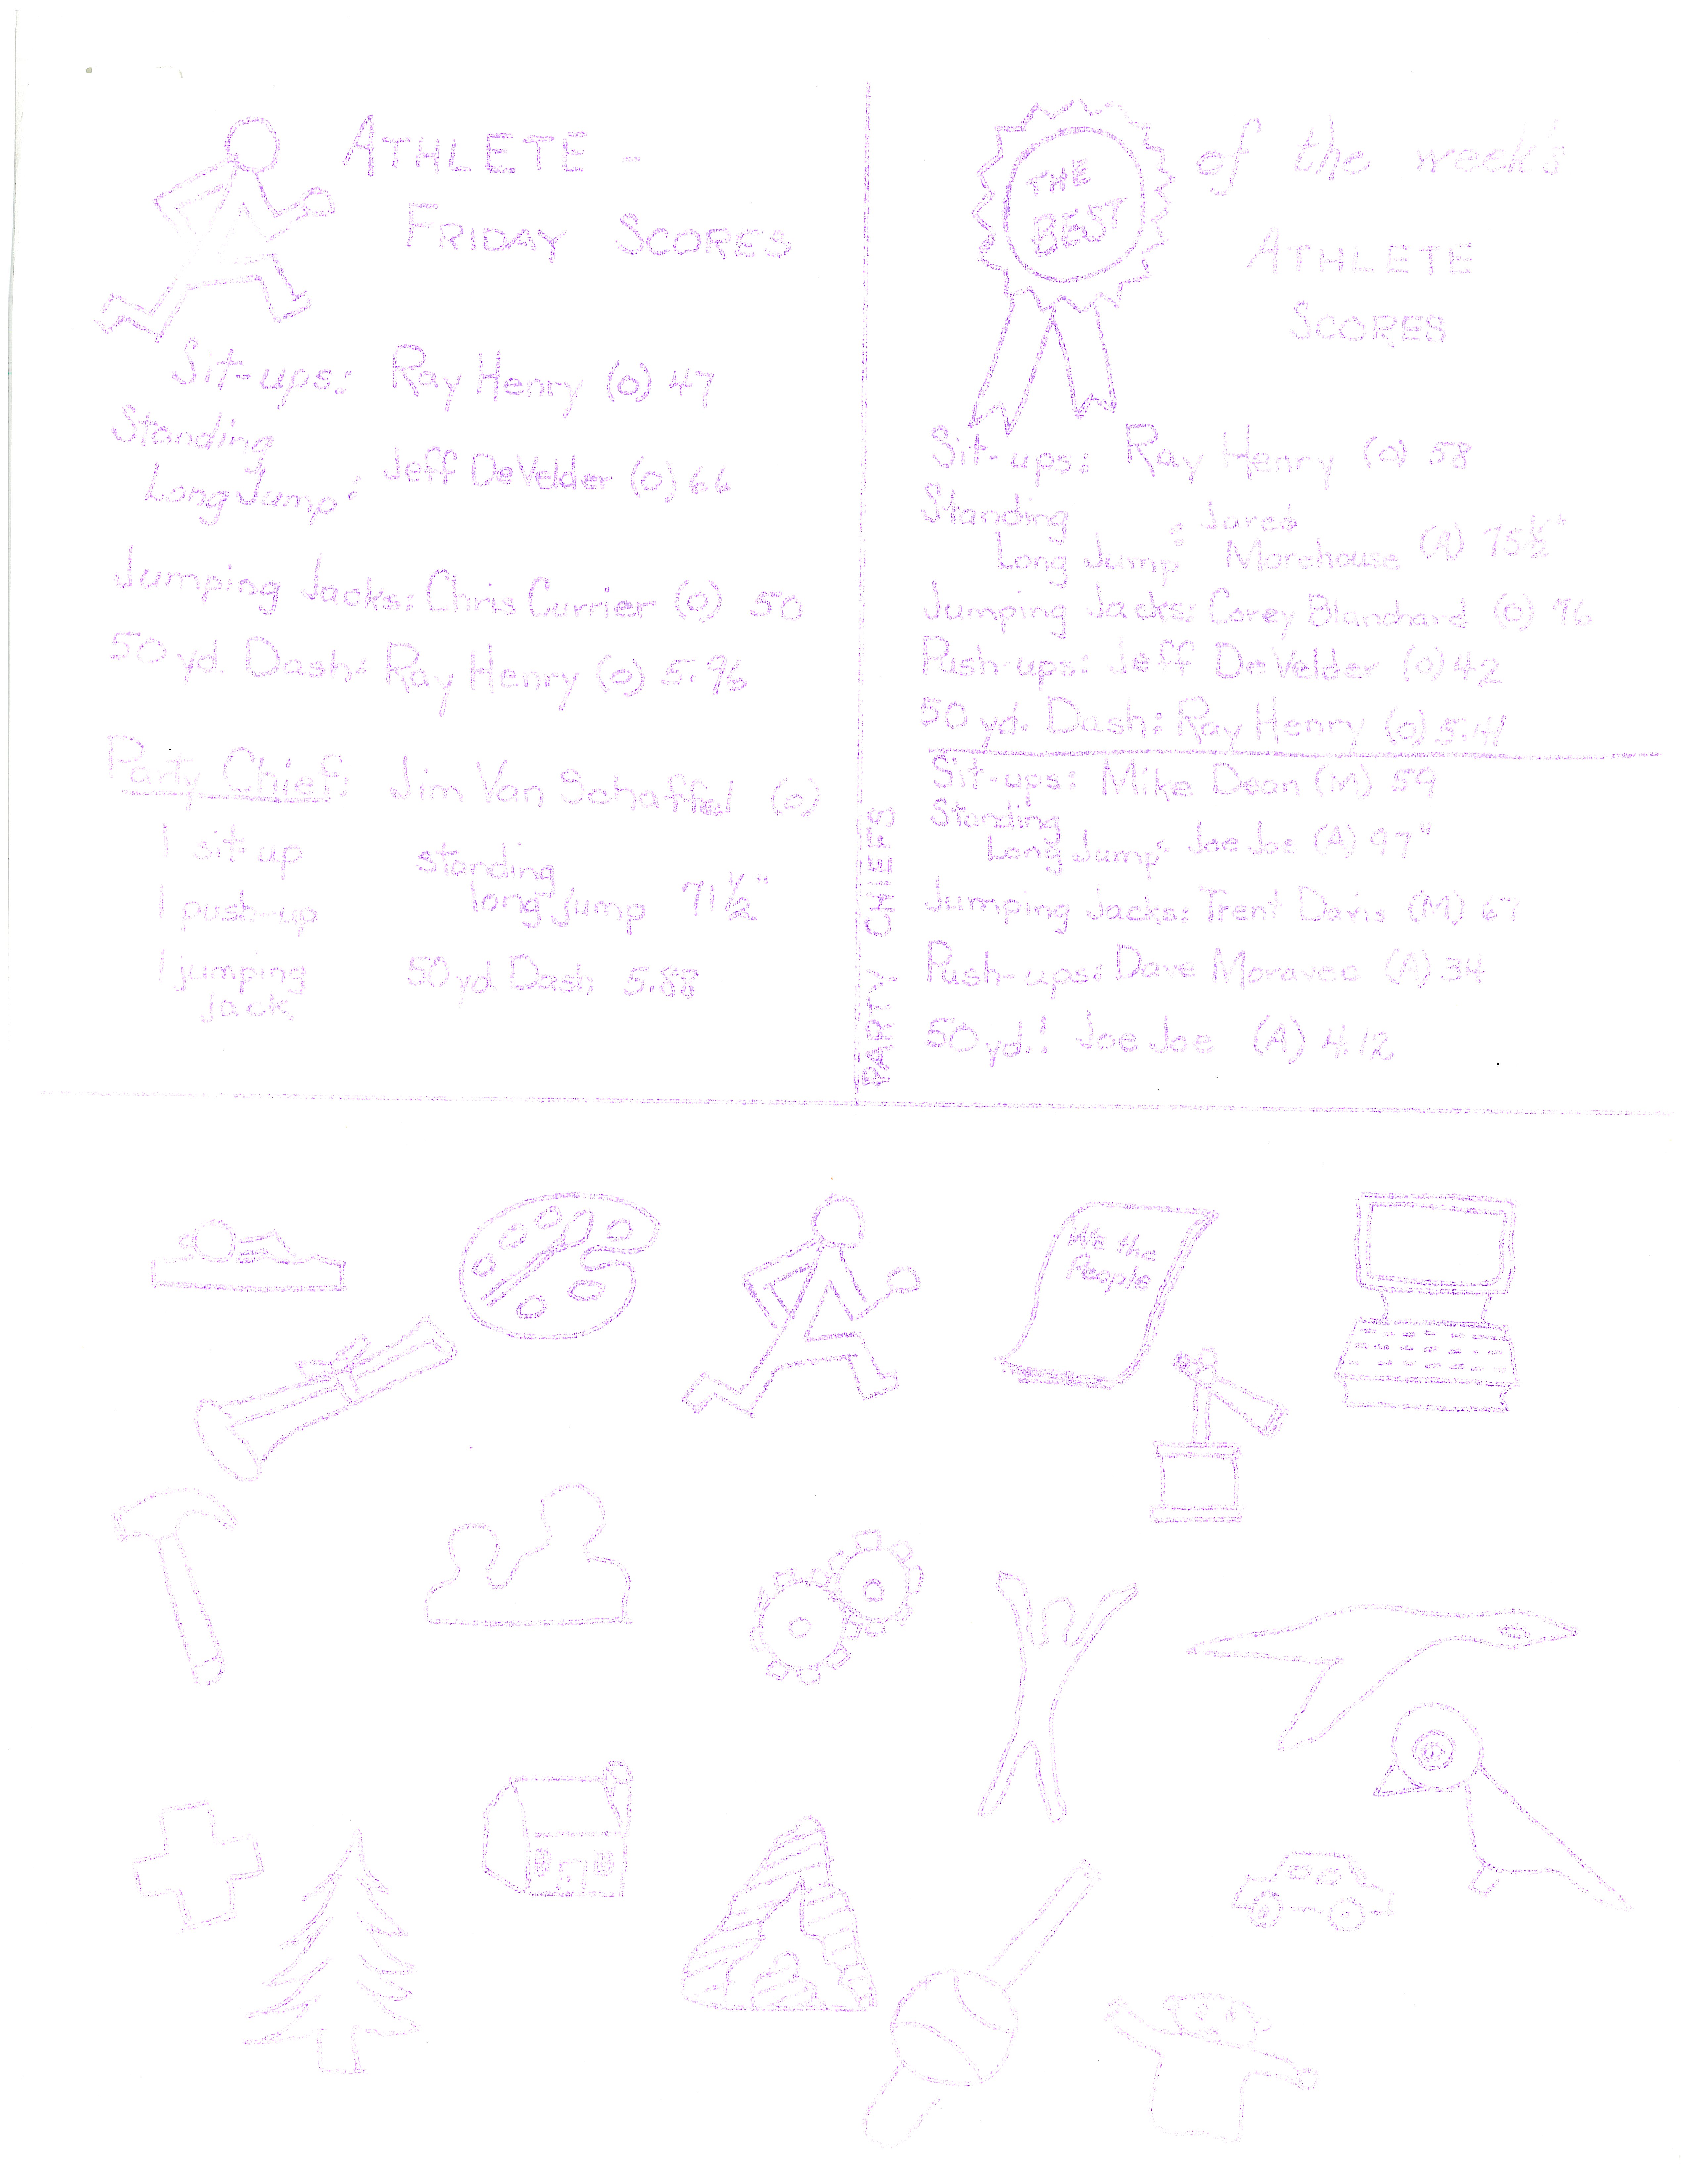 ATHLETE -
FRIDAY SCORES
Sit-ups: Ray Henry (O) 47
Standing
Long Jump: Jeff DeVelder (O) 66
Jumping Jacks: Chris Currier (O) 50
50 yd. Dash: Ray Henry (O) 5.96
Party Chief: Jim Van Schaffel (O)
1 sit up
standing
long jump 71 1/2"
1 push-up
1 jumping
jack
50 yd Dash 5.88
THE
BEST
of the week's
ATHLETE
SCORES
Sit-ups: Ray Henry (O) 58
Standing
Long Jump: Jared
Morehouse (A) 75 1/2"
Jumping Jacks: Corey Blanchard (O) 76
Push-ups: Jeff DeVelder (O) 42
50 yd. Dash: Ray Henry (O) 5.41
PARTY CHIEFS
Sit-ups: Mike Dean (M) 59
Standing
Long Jump: Joe Joe (A) 97"
Jumping Jacks: Trent Davis (M) 67
Push-ups: Dave Moravec (A) 34
50 yd.: Joe Joe (A) 4.12
We the
People